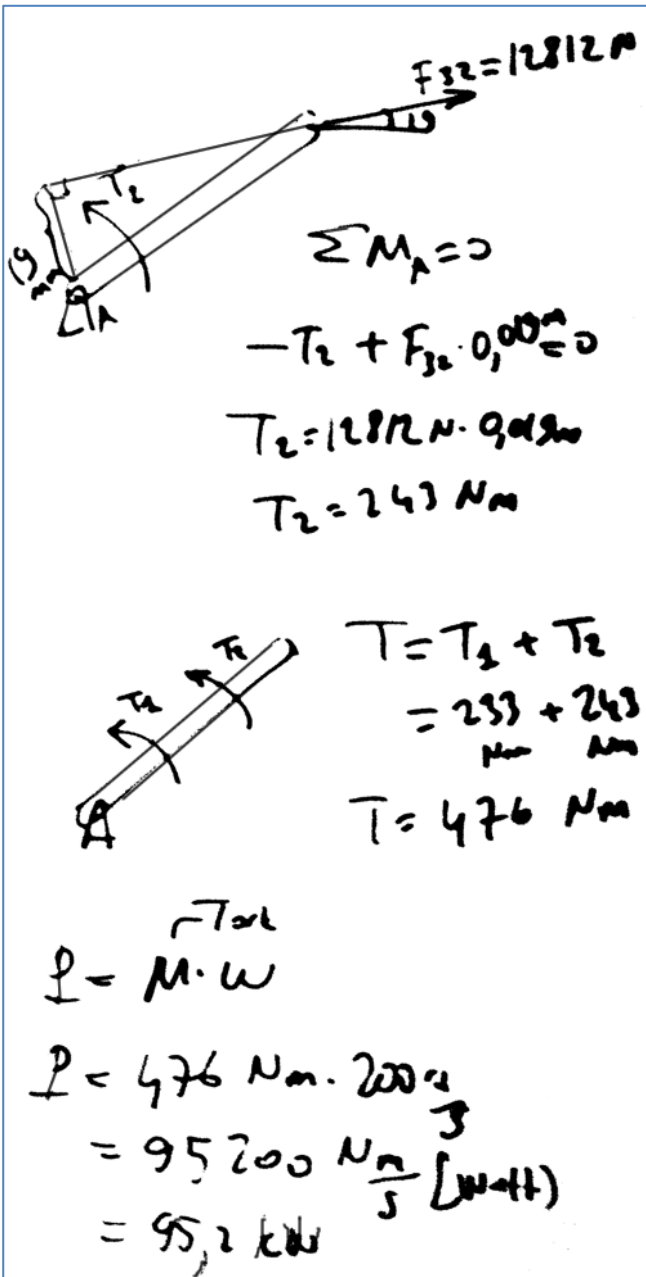 F32 = 12812 N
T2
A
ΣM_A = 0
-T2 + F32 · 0,019m = 0
T2 = 12812 N · 0,019m
T2 = 243 Nm
T1 T2
T = T1 + T2
= 233 + 243
Nm Nm
T = 476 Nm
A
Tork
P = M · ω
P = 476 Nm · 200
= 95200 Nm/s [Watt)
= 95,2 kW